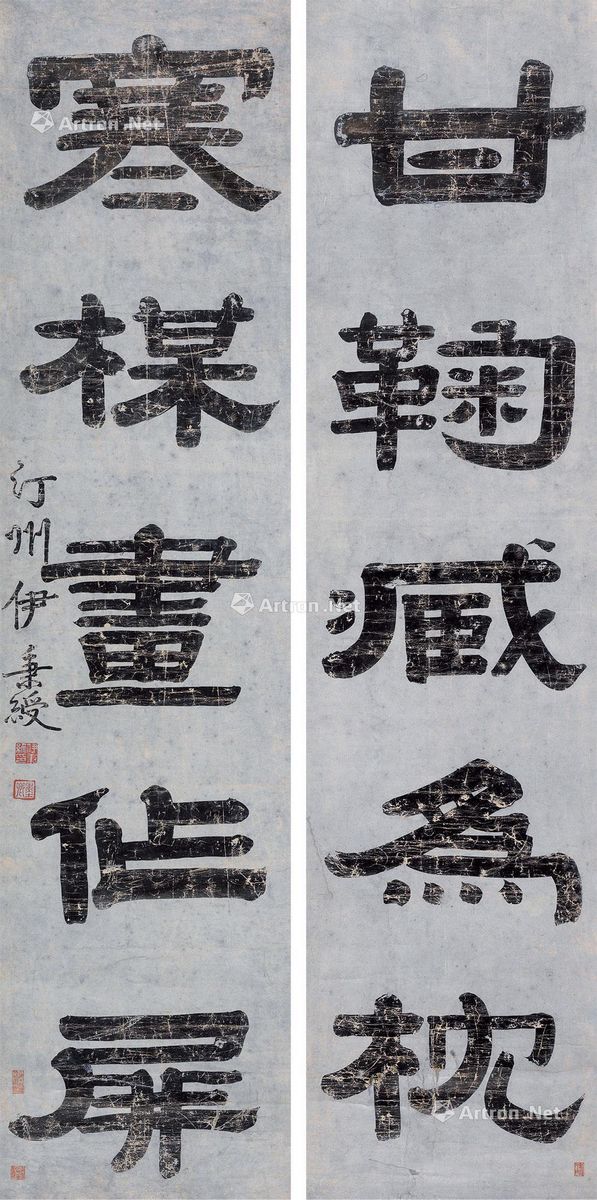 甘鞠臧為枕
寒楳畫作屏
汀州伊秉綬
Artron.Net
Artron.Net
Artron.Net